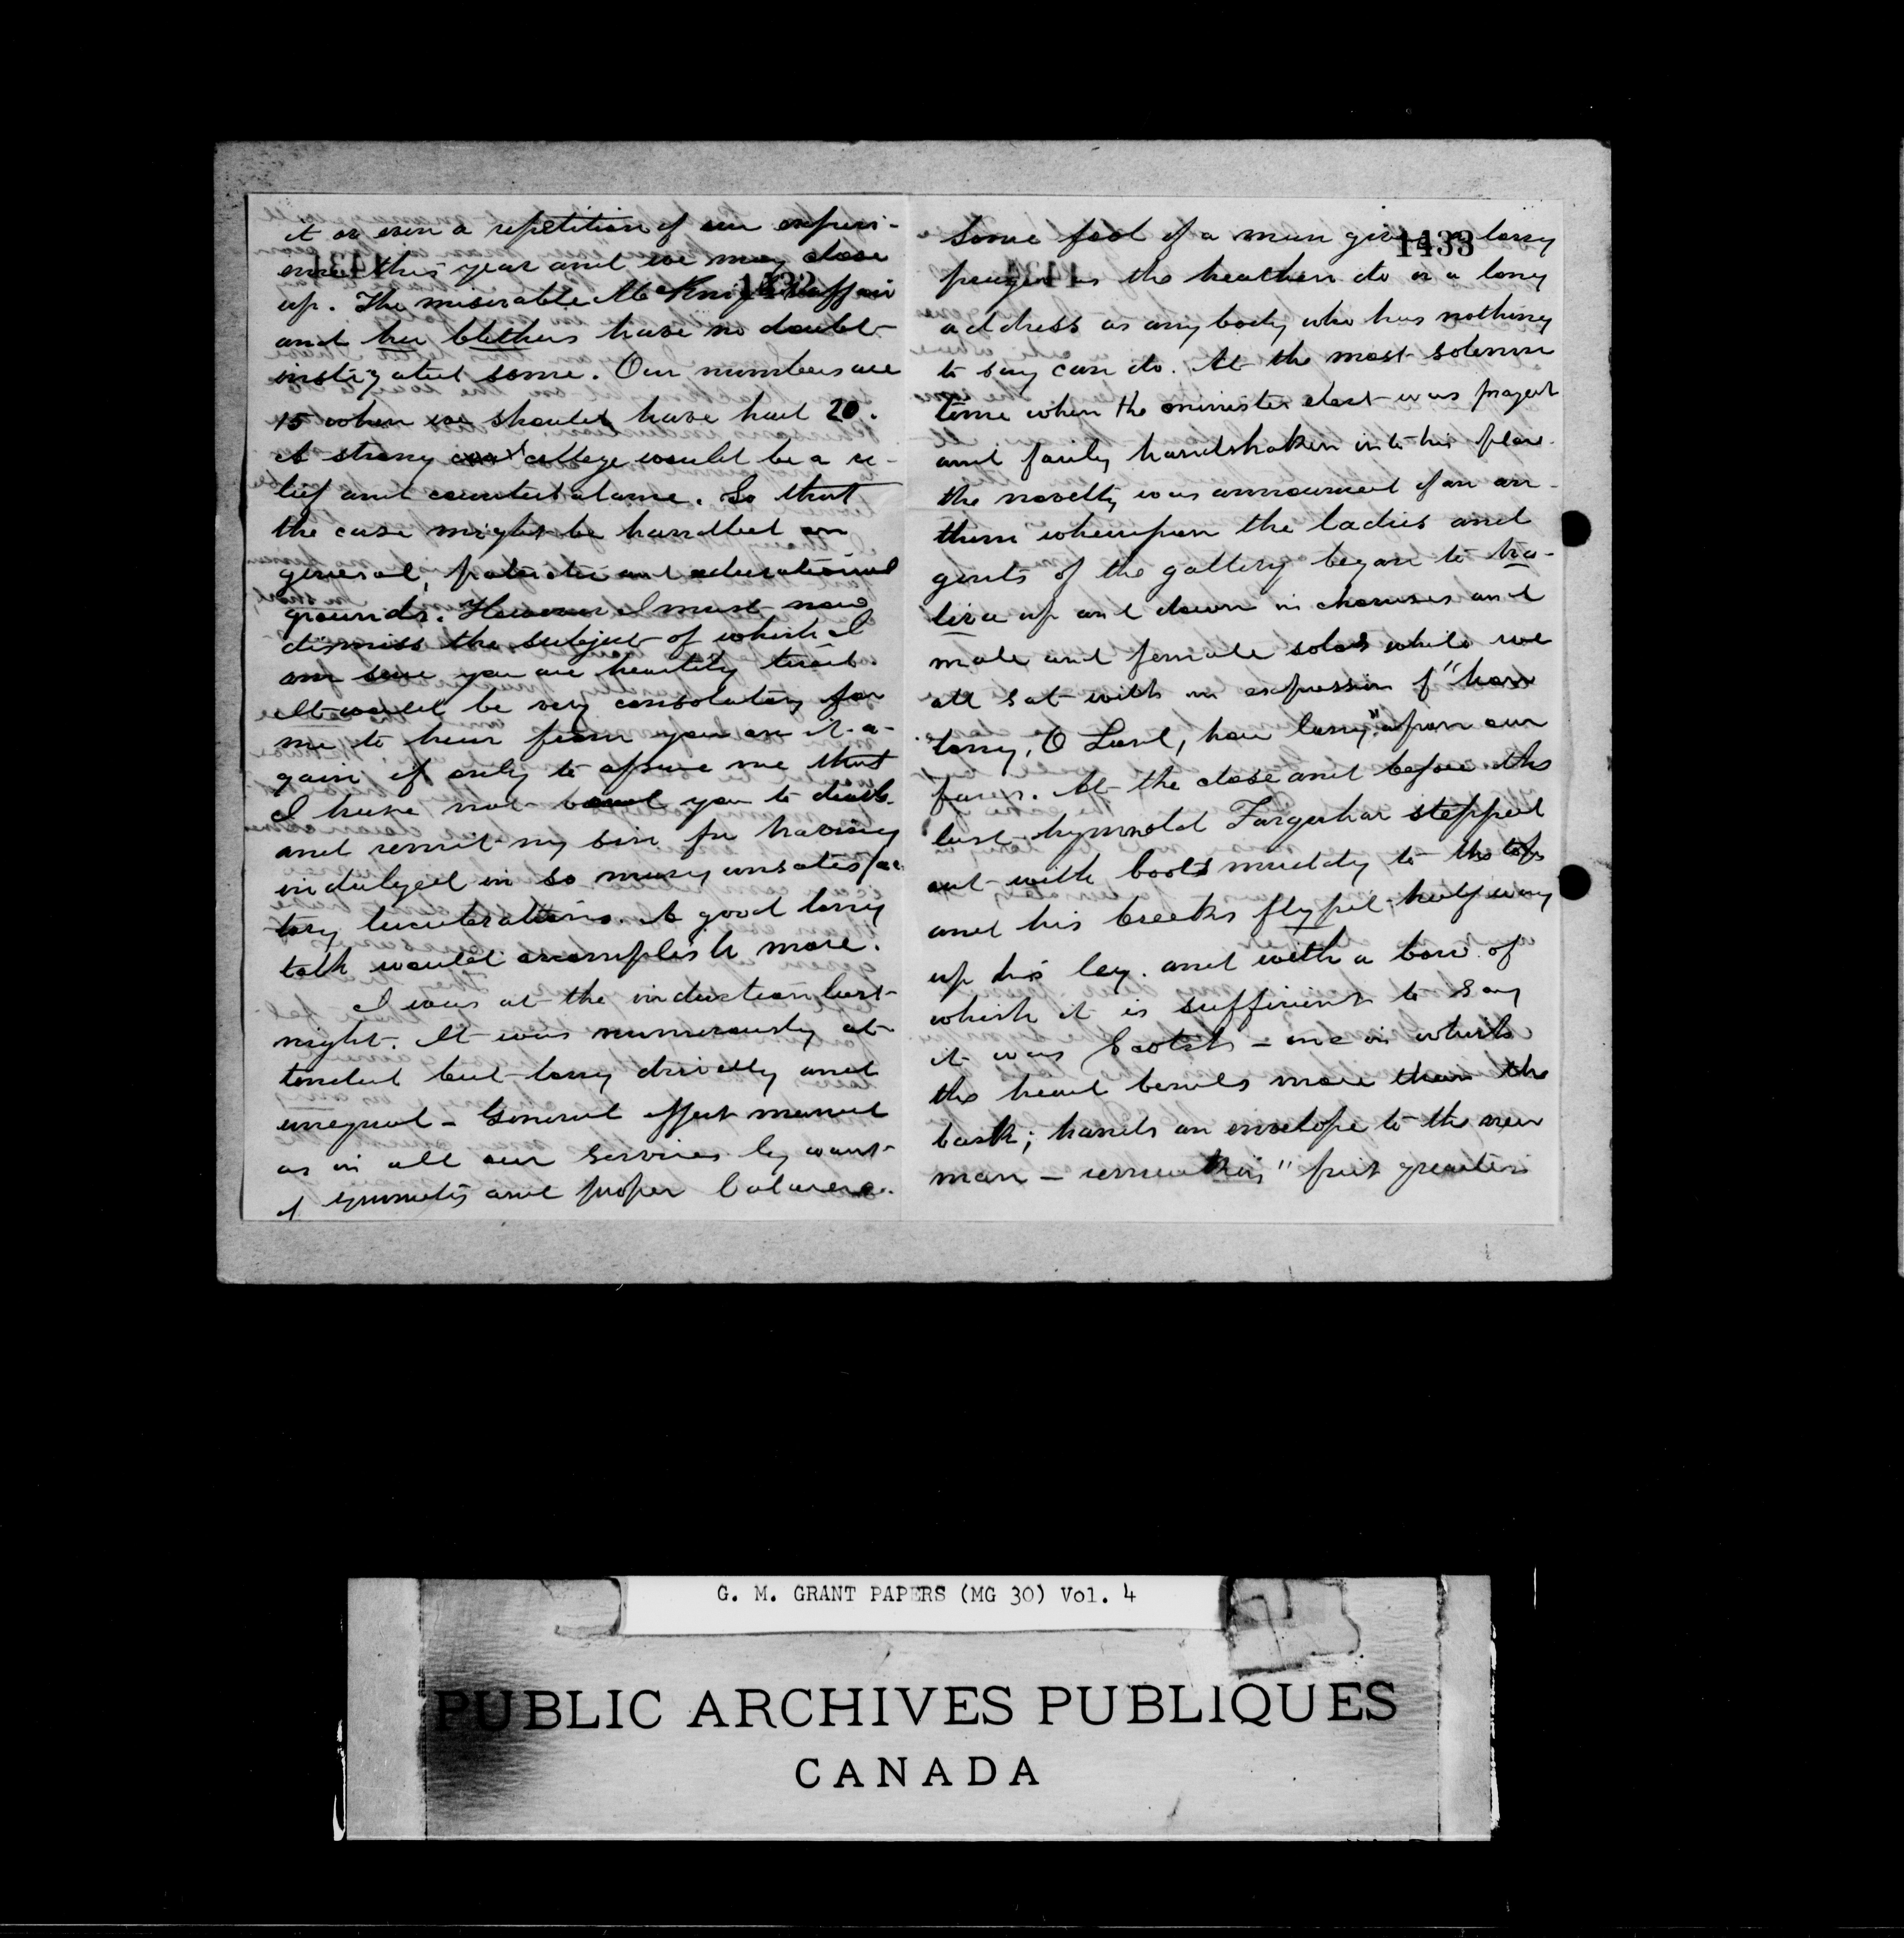 1432
it or even a repetition of our experi-
ence this year and we may close
up. The miserable McKnight affair
and her blethers have no doubt
instigated some. Our numbers are
15 when we should have had 20.
A strong college would be a re-
lief and counterbalance. So that
the case might be handled on
general, patriotic and educational
grounds. However I must now
dismiss the subject of which I
am sure you are heartily tired.
It would be very consolatory for
me to hear from you on it a-
gain if only to assure me that
I have not bored you to death
and remit my sin for having
indulged in so many unsatisfac-
tory lucubrations. A good long
talk would accomplish more.
I was at the induction last
night. It was numerously at-
tended but long drivelly and
unequal - General effect marred
as in all our services by want
of symmetry and proper balance.
1433
Some fool of a man gives a long
prayer as the heathen do or a long
address as anybody who has nothing
to say can do. At the most solemn
time when the minister elect was prayed
and fairly handshaken into his place
the novelty was announced of an an-
them whereupon the ladies and
gents of the gallery began to tra-
lira up and down in choruses and
male and female solos while we
all sat with an expression of "how
long, O Lord, how long" upon our
faces. At the close and before the
last hymn old Farquhar stepped
out with boots muddy to the tops
and his breeks flypit half way
up his leg. and with a bow of
which it is sufficient to say
it was Scotch - one in which
the head bends more than the
back; hands an envelope to the new
man - remarking "first quarter's
G. M. GRANT PAPERS (MG 30) Vol. 4
PUBLIC ARCHIVES PUBLIQUES
CANADA